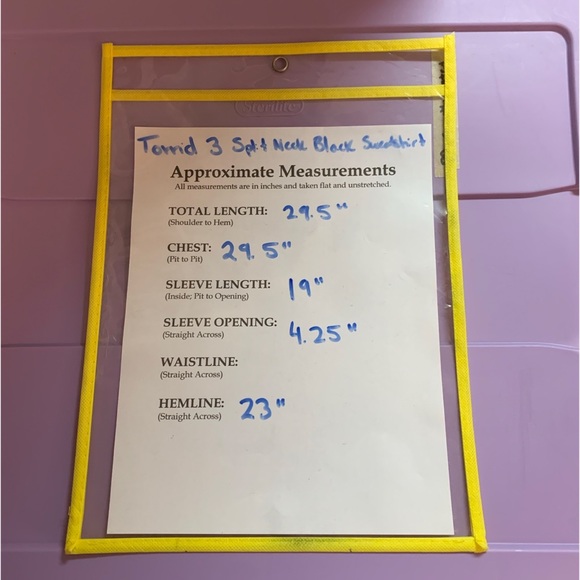 Sterilite
Torrid 3 Split Neck Black Sweatshirt
Approximate Measurements
All measurements are in inches and taken flat and unstretched.
TOTAL LENGTH: 29.5"
(Shoulder to Hem)
CHEST: 29.5"
(Pit to Pit)
SLEEVE LENGTH: 19"
(Inside; Pit to Opening)
SLEEVE OPENING: 4.25"
(Straight Across)
WAISTLINE:
(Straight Across)
HEMLINE: 23"
(Straight Across)